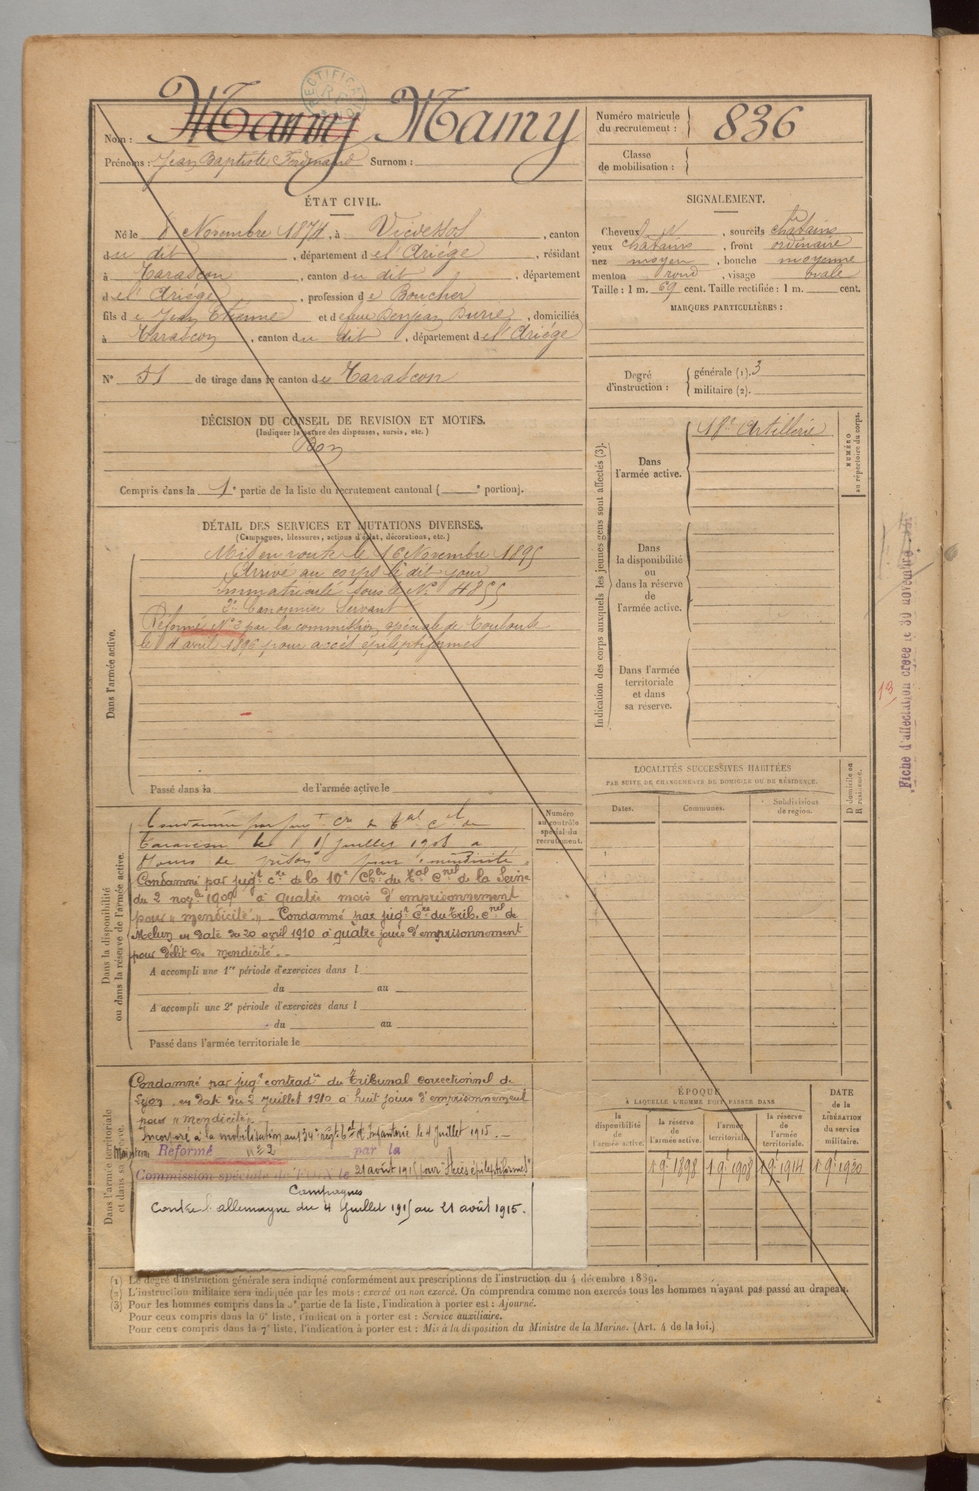 Nom : Mamy
Prénoms : Jean Baptiste Ferdinand Surnom :
Numéro matricule du recrutement : 836
Classe de mobilisation :
ÉTAT CIVIL.
Né le 8 Novembre 1874, à Vicdessos, canton
du dit, département de l'Ariége, résidant
à Tarascon, canton du dit, département
de l'Ariége, profession de Boucher
fils de Jean Etienne et de, domiciliés
à Tarascon, canton du dit, département de l'Ariége
N° 51 de tirage dans le canton de Tarascon
DÉCISION DU CONSEIL DE REVISION ET MOTIFS.
(Indiquer la nature des dispenses, sursis, etc.)
Bon
Compris dans la 1e partie de la liste du recrutement cantonal ( e portion).
SIGNALEMENT.
Cheveux et, sourcils châtains
yeux châtains, front ordinaire
nez moyen, bouche moyenne
menton rond, visage ovale
Taille : 1 m. 69 cent. Taille rectifiée : 1 m. cent.
MARQUES PARTICULIÈRES :
Degré d'instruction :
générale (1). 3
militaire (2).
DÉTAIL DES SERVICES ET MUTATIONS DIVERSES.
(Campagnes, blessures, actions d'éclat, décorations, etc.)
Dans l'armée active.
Mis en route le 16 Novembre 1895
Arrivé au corps le dit jour
immatriculé sous le N° 4855
2e Canonnier Servant
Réformé N° 2 par la commission spéciale de Toulouse
le avril 1896 pour accès épileptiformes
Passé dans la de l'armée active le
Indication des corps auxquels les jeunes gens sont affectés (3).
NUMÉRO au répertoire du corps.
Dans l'armée active.
18e Artillerie
Dans la disponibilité ou dans la réserve de l'armée active.
Dans l'armée territoriale et dans sa réserve.
Fiche d'affectation créée le 30 novembre
13
LOCALITÉS SUCCESSIVES HABITÉES
PAR SUITE DE CHANGEMENTS DE DOMICILE OU DE RÉSIDENCE.
Dates. Communes. Subdivisions de région. D domicile ou R résidence.
Dans la disponibilité ou dans la réserve de l'armée active.
Numéro au contrôle spécial du recrutement.
Condamné par jugt cre du tal cel de
Tarascon le 15 juillet 1908 à
jours de prison pour "mendicité".
Condamné par jugt cre de la 10e Chbre du Tal Cnel de la Seine
du 2 novbre 1909 à quatre mois d'emprisonnement
pour "mendicité". Condamné par jugt cre du Trib. cnel de
Melun en date du 20 avril 1910 à quatre jours d'emprisonnement
pour délit de mendicité.
A accompli une 1re période d'exercices dans l
du au
A accompli une 2e période d'exercices dans l
du au
Passé dans l'armée territoriale le
Dans l'armée territoriale et dans sa réserve.
Condamné par jugt contradre du Tribunal correctionnel de
Lyon en date du 2 juillet 1910 à huit jours d'emprisonnement
pour "Mendicité".
Incorporé à la mobilisation au 34e régt d'Infanterie le 4 Juillet 1915.
Réformé n° 2 par la
Commission spéciale de le 21 août 1915 pour "Accès épileptiformes"
Campagnes
Contre l'allemagne du 4 Juillet 1915 au 21 août 1915.
ÉPOQUE
A LAQUELLE L'HOMME DOIT PASSER DANS
la disponibilité de l'armée active. la réserve de l'armée active. l'armée territoriale. la réserve de l'armée territoriale.
DATE de la LIBÉRATION du service militaire.
1 9e 1898 1 9e 1908 1 9e 1914 1 9e 1920
(1) Le degré d'instruction générale sera indiqué conformément aux prescriptions de l'instruction du 4 décembre 1889.
(2) L'instruction militaire sera indiquée par les mots : exercé ou non exercé. On comprendra comme non exercés tous les hommes n'ayant pas passé au drapeau.
(3) Pour les hommes compris dans la 5e partie de la liste, l'indication à porter est : Ajourné.
Pour ceux compris dans la 6e liste, l'indication à porter est : Service auxiliaire.
Pour ceux compris dans la 7e liste, l'indication à porter est : Mis à la disposition du Ministre de la Marine. (Art. 4 de la loi.)